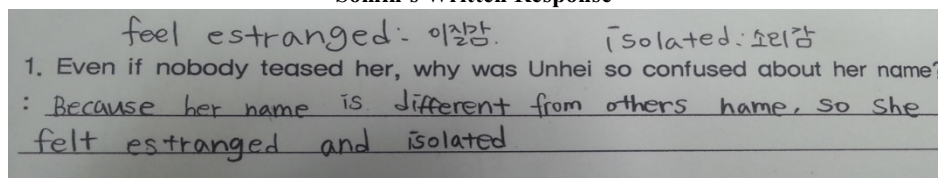 Somin's Written Response
feel estranged: 이질감. isolated: 소리감
1. Even if nobody teased her, why was Unhei so confused about her name?
: Because her name is different from others name, so she
felt estranged and isolated